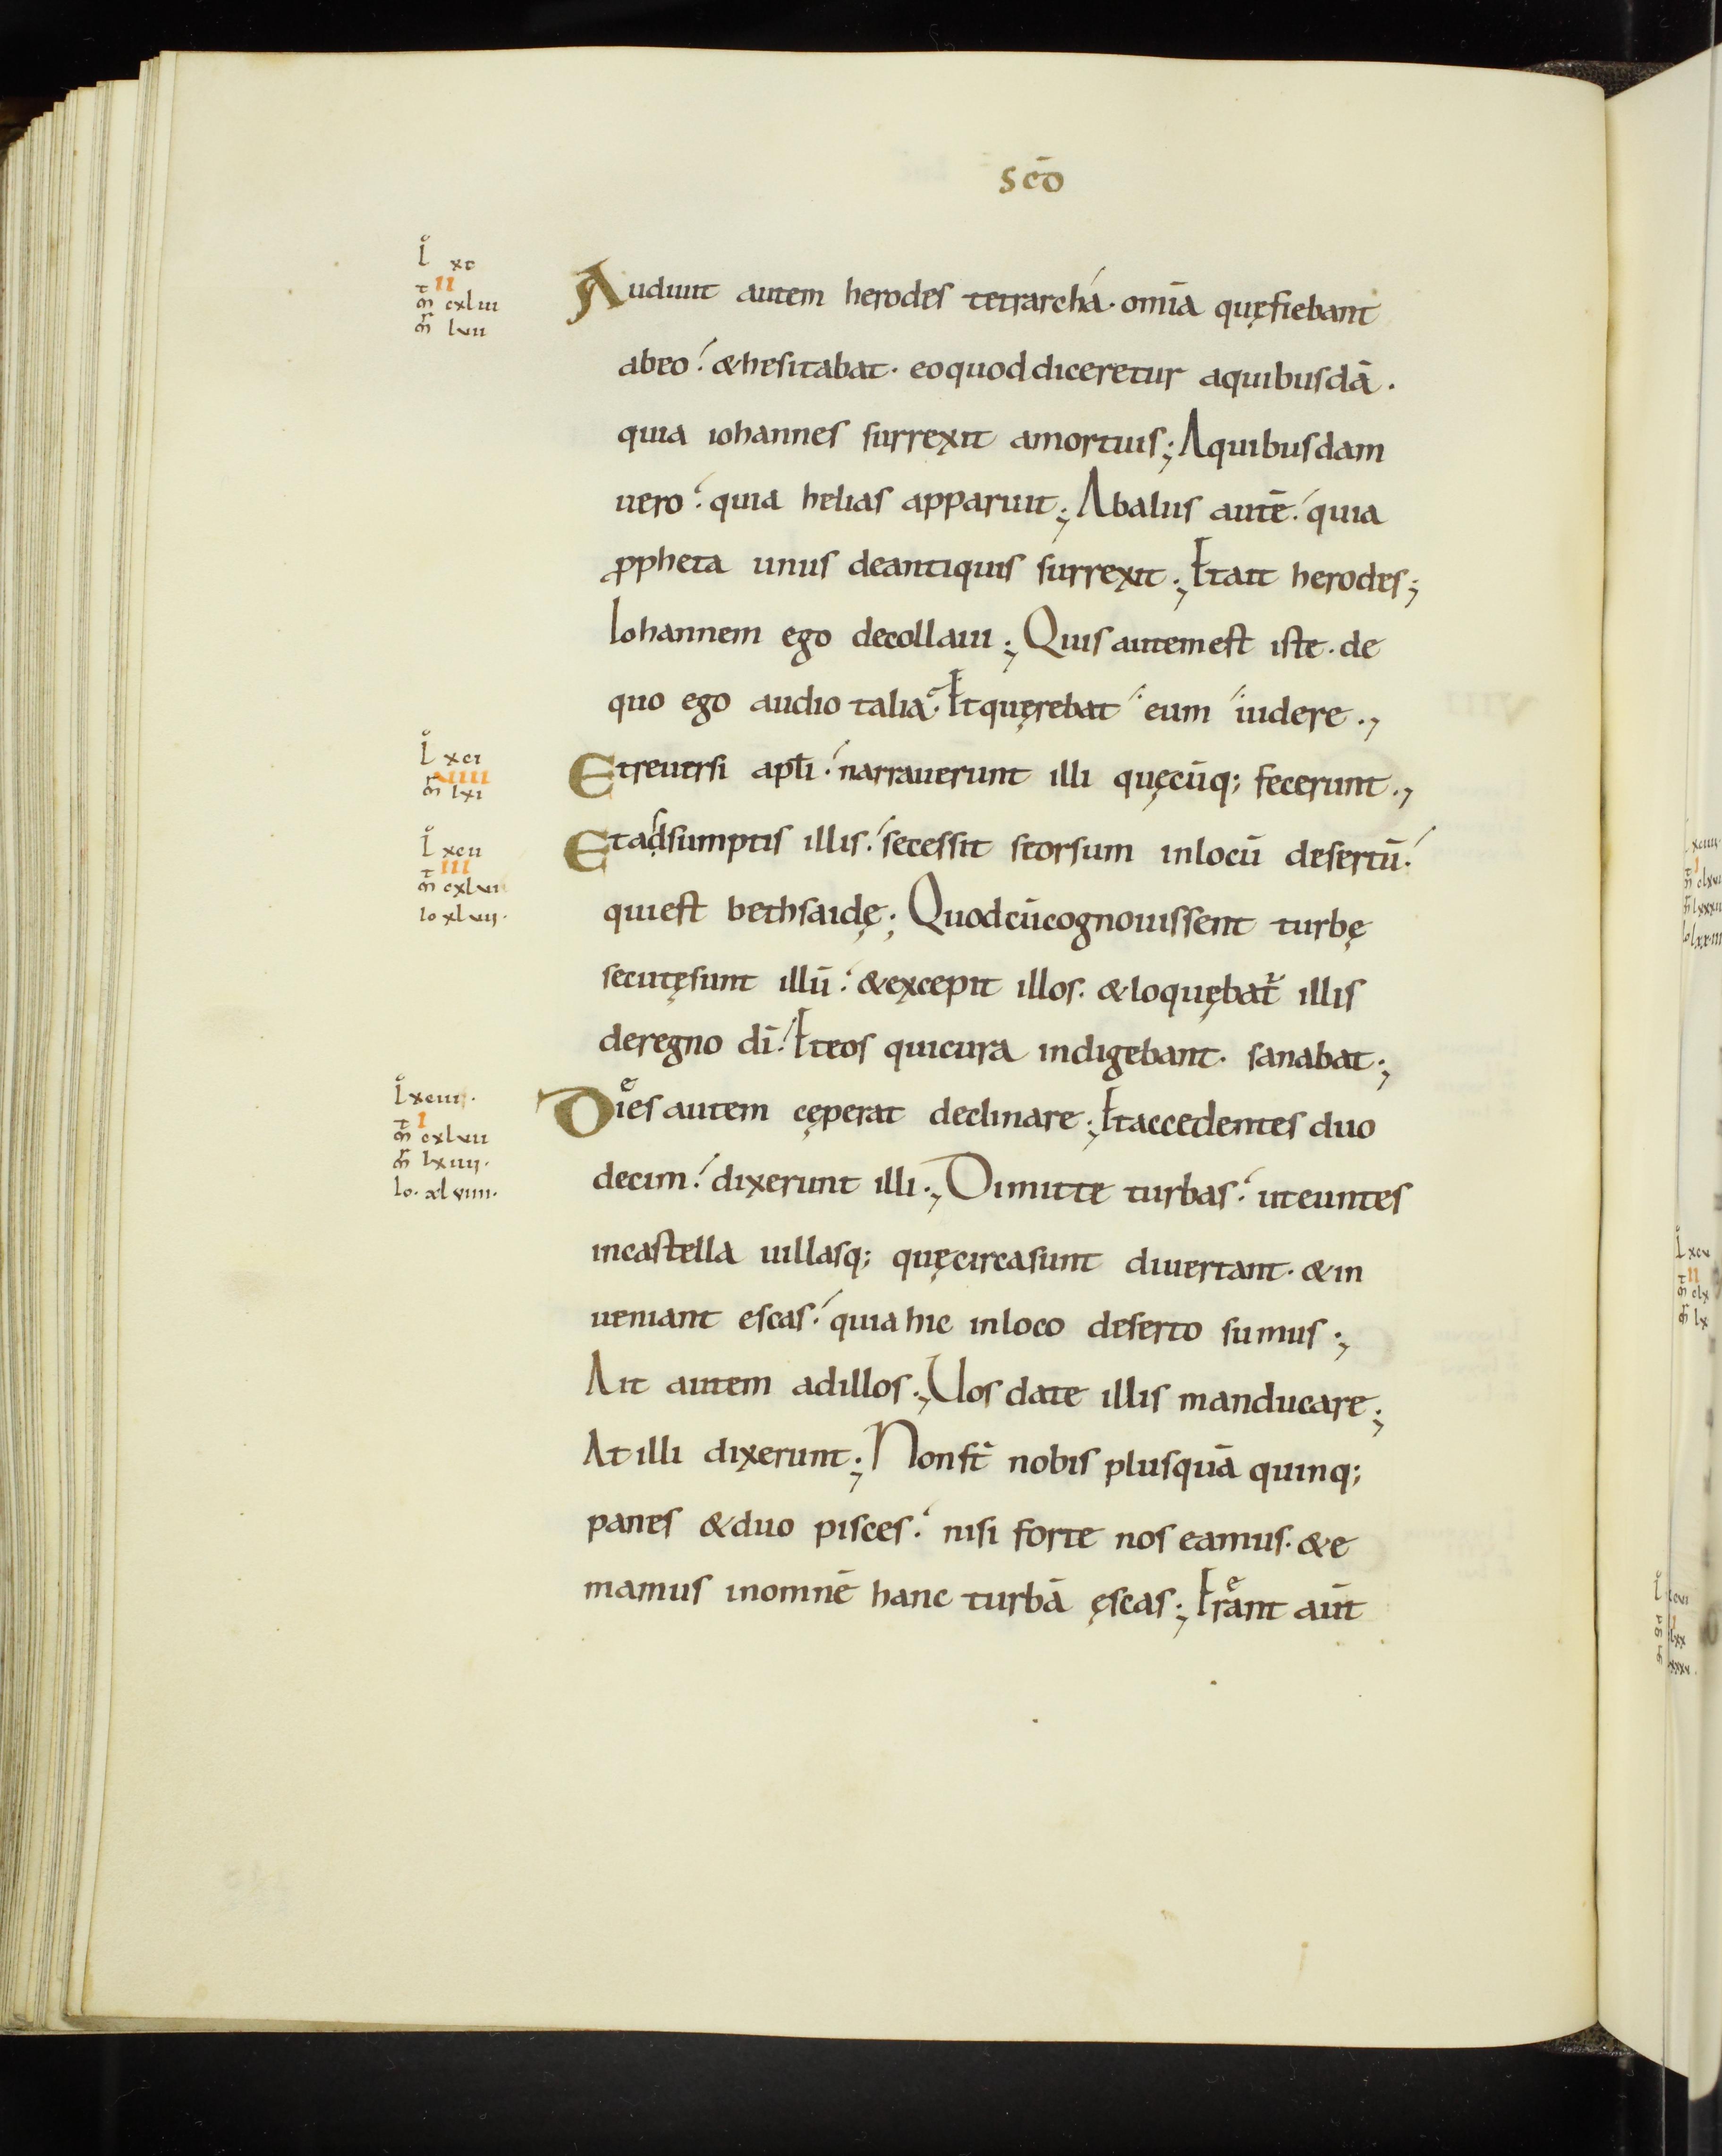 scō
L xc
II
mͭ cxliii
mͬ lvii
Audiuit autem herodes tetrarcha · omīa quęfiebant
abeo · &hesitabat · eoquoddiceretur aquibusdā ·
quia iohannes surrexit amortuis; Aquibusdam
uero · quia helias apparuit; Abaliis autē · quia
ꝓpheta unus deantiquis surrexit; Etait herodes;
Iohannem ego decollaui; Quisautemest iste · de
quo ego audio talia · Etquęrebat eum uidere ·,
L xci
VIIII
mͬ lxi
Etreuersi apłi · narrauerunt illi quęcūq; fecerunt ·,
L xcii
III
mͭ cxlvi
Io xlvij ·
Etadsumptis illis · secessit seorsum inlocū desertū ·
quiest bethsaidę; Quodcūcognouissent turbę
secutęsunt illū · &excepit illos · &loquębat᷑ illis
deregno dī · Eteos quicura indigebant · sanabat;
L xciii ·
I
mͭ cxlvii
mͬ lxiiij ·
Io · xlviiii ·
Dies autem cęperat declinare; Etaccedentes duo
decim · dixerunt illi ·, Dimitte turbas · uteuntes
incastella uillasq; quęcircasunt diuertant · &in
ueniant escas · quia hic inloco deserto sumus;
Ait autem adillos ·, Uos date illis manducare;
Atilli dixerunt; Nonst̄ nobis plusquā quinq;
panes &duo pisces · nisi forte nos eamus · &e
mamus inomnē hanc turbā ęscas; Erant aūt